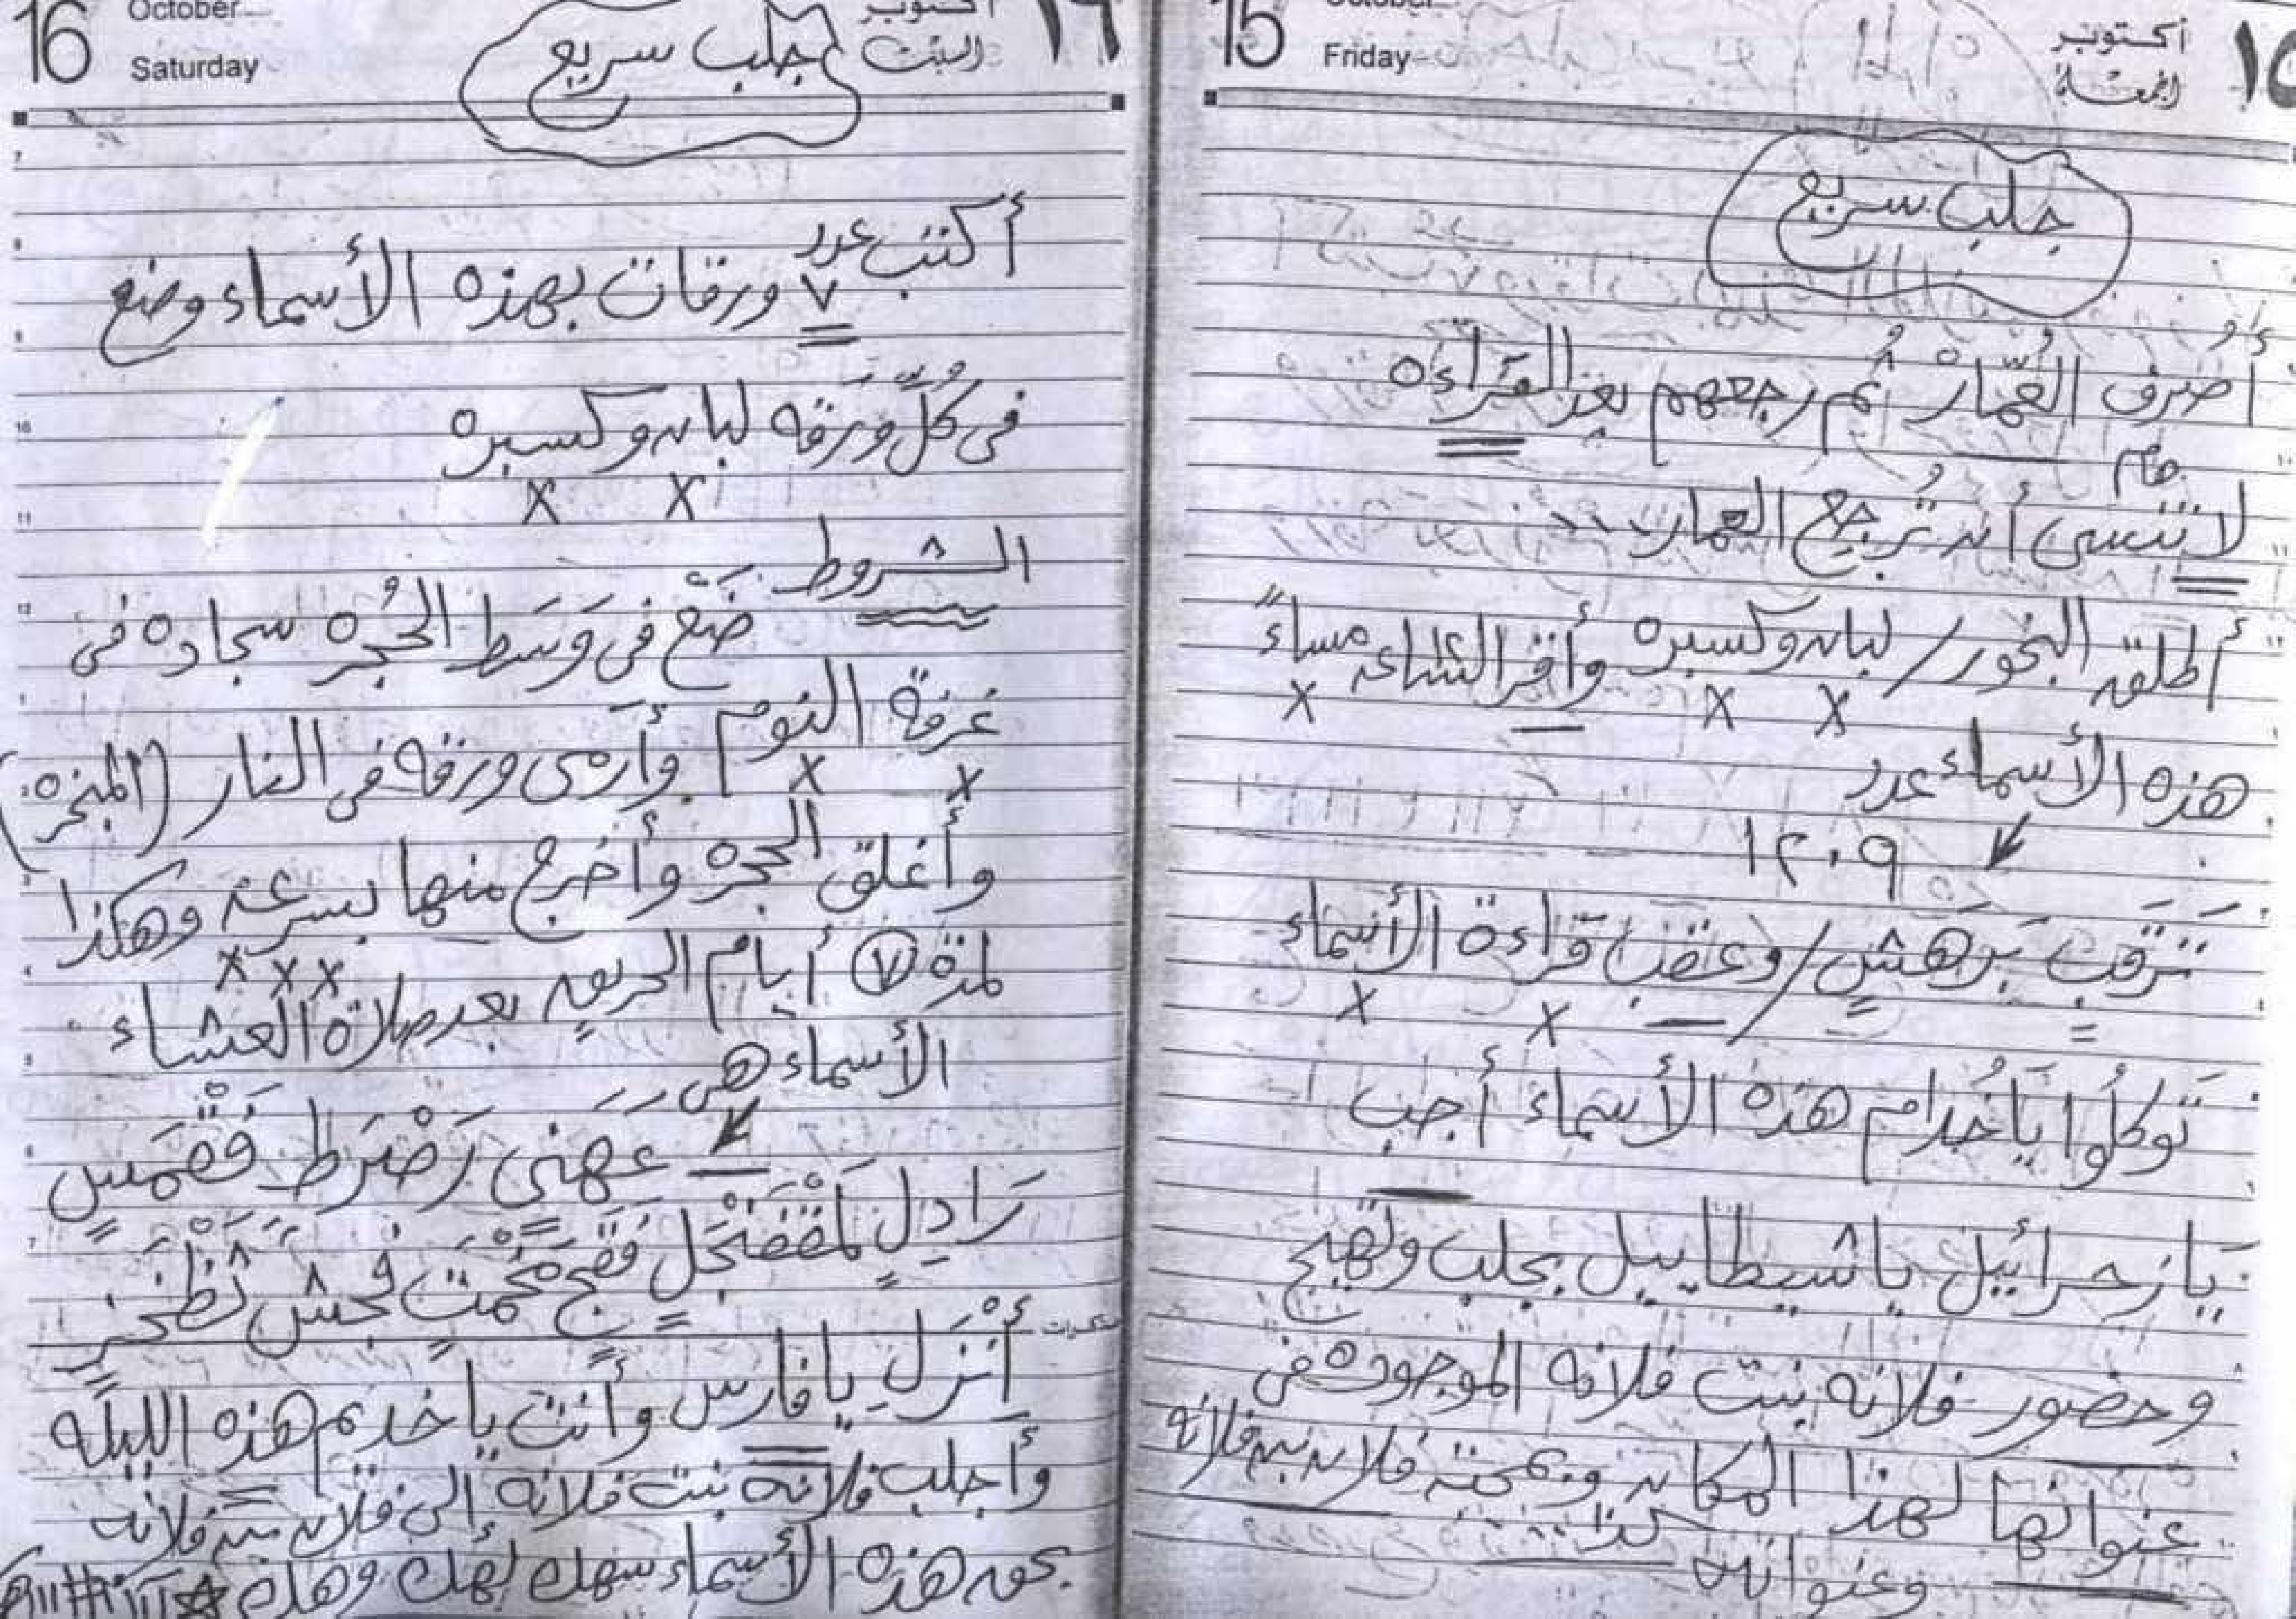 15
October
Friday
أكتوبر
الجمعة
١٥
جلب سريع
أُصرف العُمّارْ ثُم رجعهم بعد القراءه
هام
لا تنسى أن تُرجع العمار
أطلق البخور / لبان وكسبره وأقرأ الساعه مساءً
x x x
هذه الأسماء عدد
١٢٠٩
تَرقب بَرَهشٍ / وعقب قراءة الأسماء
x x
توكلُوا يَاخُدام هذه الأسماء أجب
يازحرائيل ياشيطاييل بجلب وتهيج
وحضور فلانه بنت فلانه الموجوده فى
عنوانها لهذا المكان ومحبة فلان بن فلانه
وعنوانه كذا
16
October
Saturday
أكتوبر
السبت
١٦
جلب سريع
أكتب عدد
٧ ورقات بهذه الأسماء وضع
فى كُلّ وَرَقه لبان وكسبره
x x
الشروط
ضَع فى وَسَط الحُجره سجاده فى
غرفة النوم وأرمى ورقه فى النار (المبخره)
x x
وأغلق الحجره وأخرج منها بسرعه وهكذا
x x x
لمدة ٧ أيام الحريق بعد صلاة العشاء
الأسماء هى
عَهنىٍ رَصْرَط فَقْمَسٍ
رَادِلٍ فَقَج مَخْمَتٍ فجش
أنْزل يافارس وأنت ياخديم هذه الليله
وأجلب فلانه بنت فلانه إلى فلان بن فلانه
بحق هذه الأسماء سهك لهك وهك
مذكرات